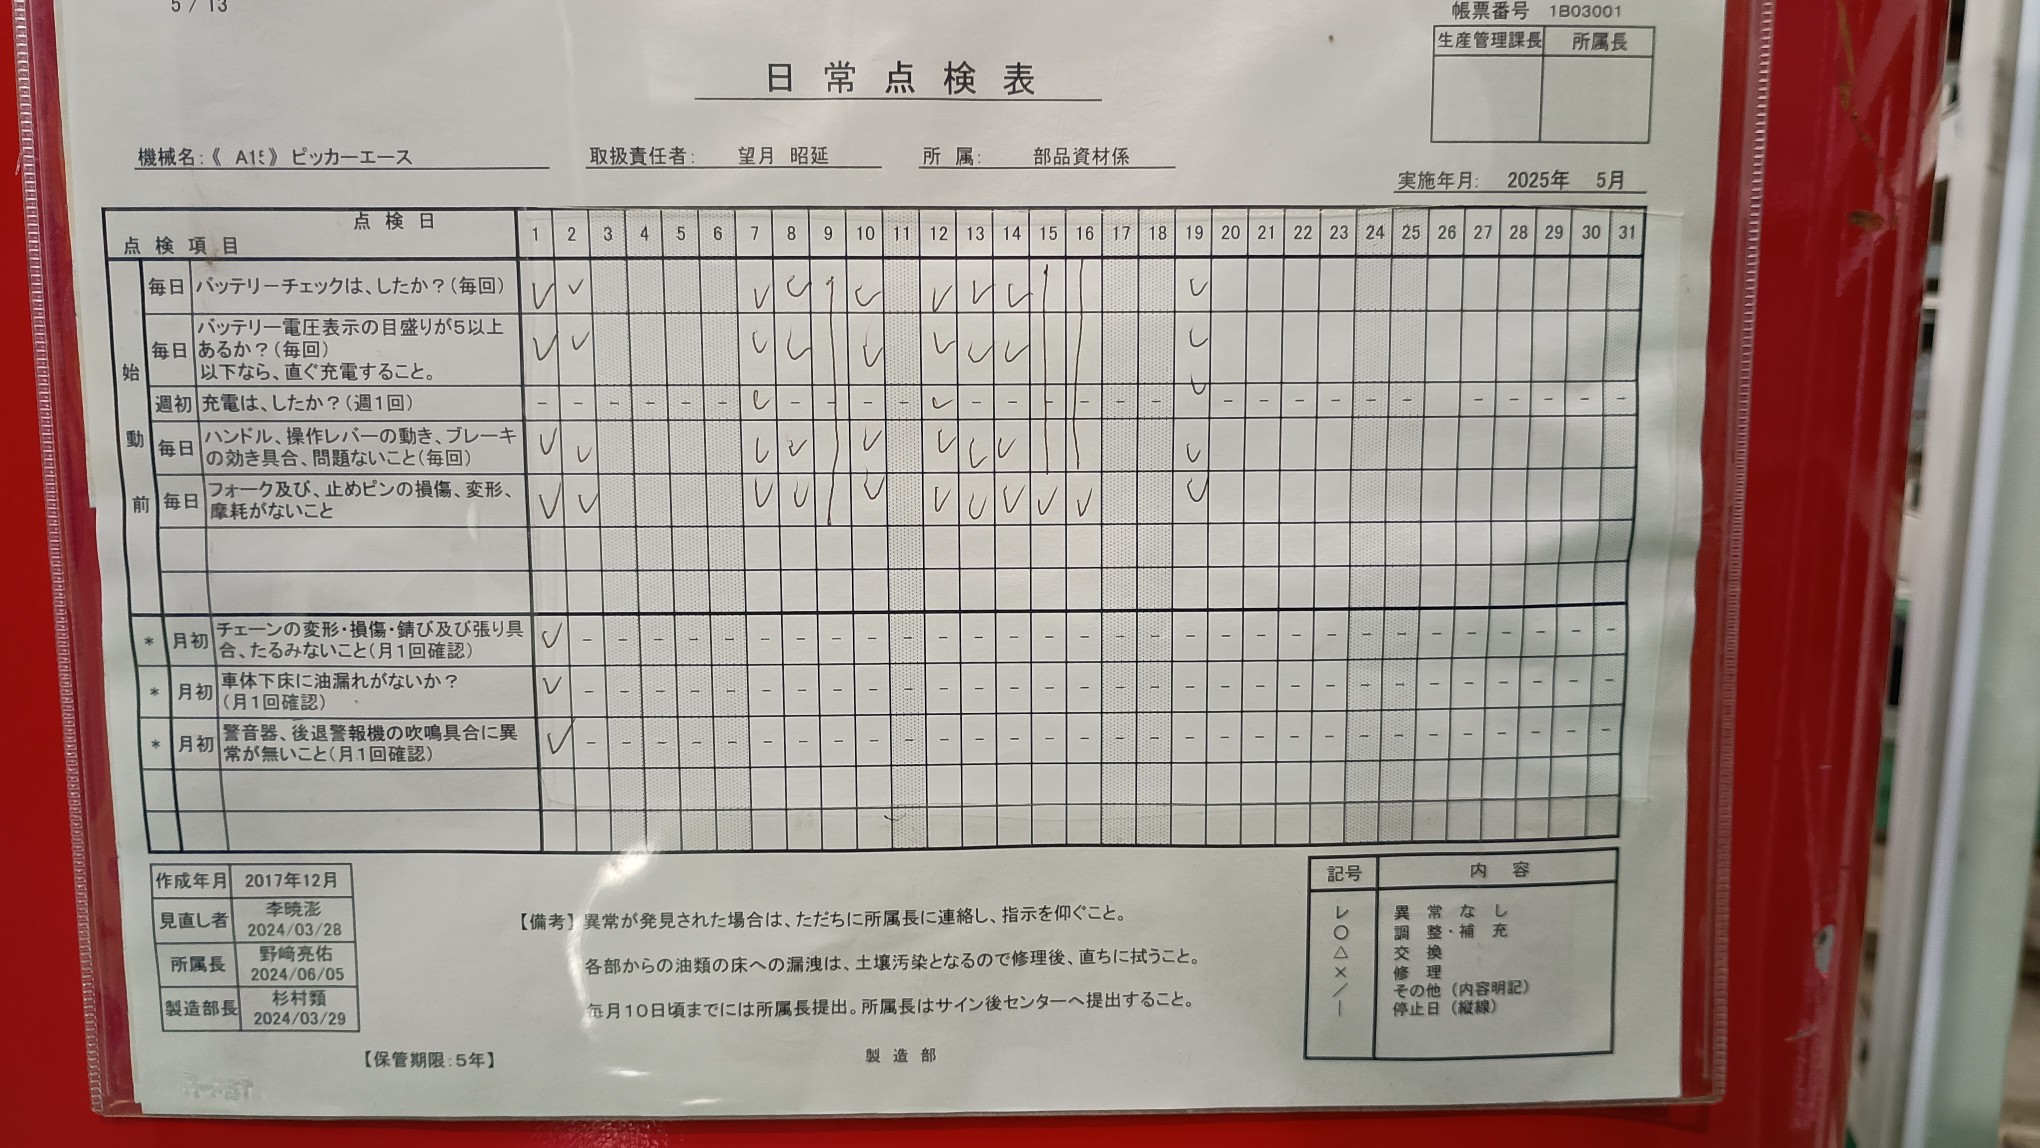 5 / 13
帳票番号 1B03001
生産管理課長 所属長
日常点検表
機械名:《 A15》 ピッカーエース 取扱責任者: 望月 昭延 所 属: 部品資材係
実施年月: 2025年 5月
点 検 日
点 検 項 目
1 2 3 4 5 6 7 8 9 10 11 12 13 14 15 16 17 18 19 20 21 22 23 24 25 26 27 28 29 30 31
始動前
毎日 バッテリーチェックは、したか?(毎回) レ レ レ レ | レ レ レ レ | | レ
毎日 バッテリー電圧表示の目盛りが5以上
あるか?(毎回) レ レ レ レ | レ レ レ レ | | レ
以下なら、直ぐ充電すること。
週初 充電は、したか?(週1回) - - - - - - レ - - - - レ - - - - - - レ - - - - - - - - - - -
毎日 ハンドル、操作レバーの動き、ブレーキ
の効き具合、問題ないこと(毎回) レ レ レ レ | レ レ レ レ | | レ
毎日 フォーク及び、止めピンの損傷、変形、
摩耗がないこと レ レ レ レ | レ レ レ レ レ レ レ
* 月初 チェーンの変形・損傷・錆び及び張り具
合、たるみないこと(月1回確認) レ - - - - - - - - - - - - - - - - - - - - - - - - - - - - - -
* 月初 車体下床に油漏れがないか?
(月1回確認) レ - - - - - - - - - - - - - - - - - - - - - - - - - - - - - -
* 月初 警音器、後退警報機の吹鳴具合に異
常が無いこと(月1回確認) レ - - - - - - - - - - - - - - - - - - - - - - - - - - - - - -
作成年月 2017年12月
見直し者 李暁澎
2024/03/28
所属長 野﨑亮佑
2024/06/05
製造部長 杉村類
2024/03/29
【備考】異常が発見された場合は、ただちに所属長に連絡し、指示を仰ぐこと。
各部からの油類の床への漏洩は、土壌汚染となるので修理後、直ちに拭うこと。
毎月10日頃までには所属長提出。所属長はサイン後センターへ提出すること。
記号 内 容
レ 異 常 な し
○ 調 整・補 充
△ 交 換
× 修 理
／ その他 (内容明記)
| 停止日 (縦線)
【保管期限:5年】 製 造 部